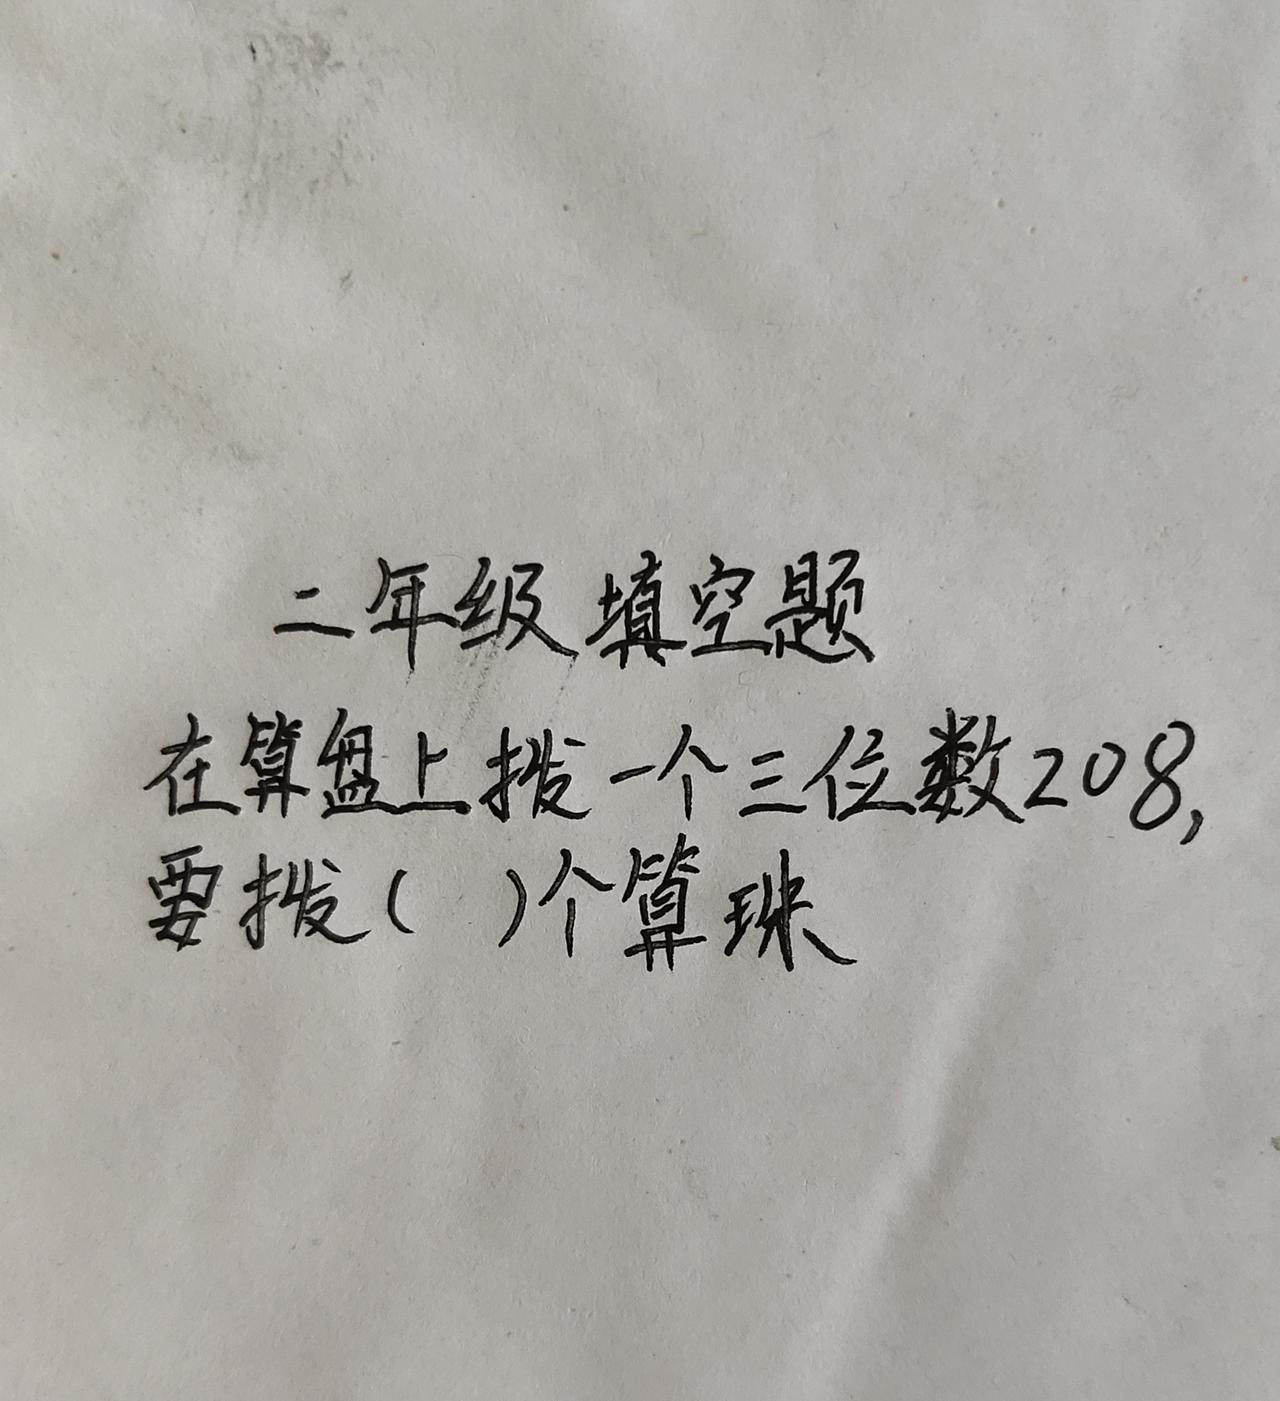 二年级 填空题
在算盘上拨一个三位数208,
要拨( )个算珠